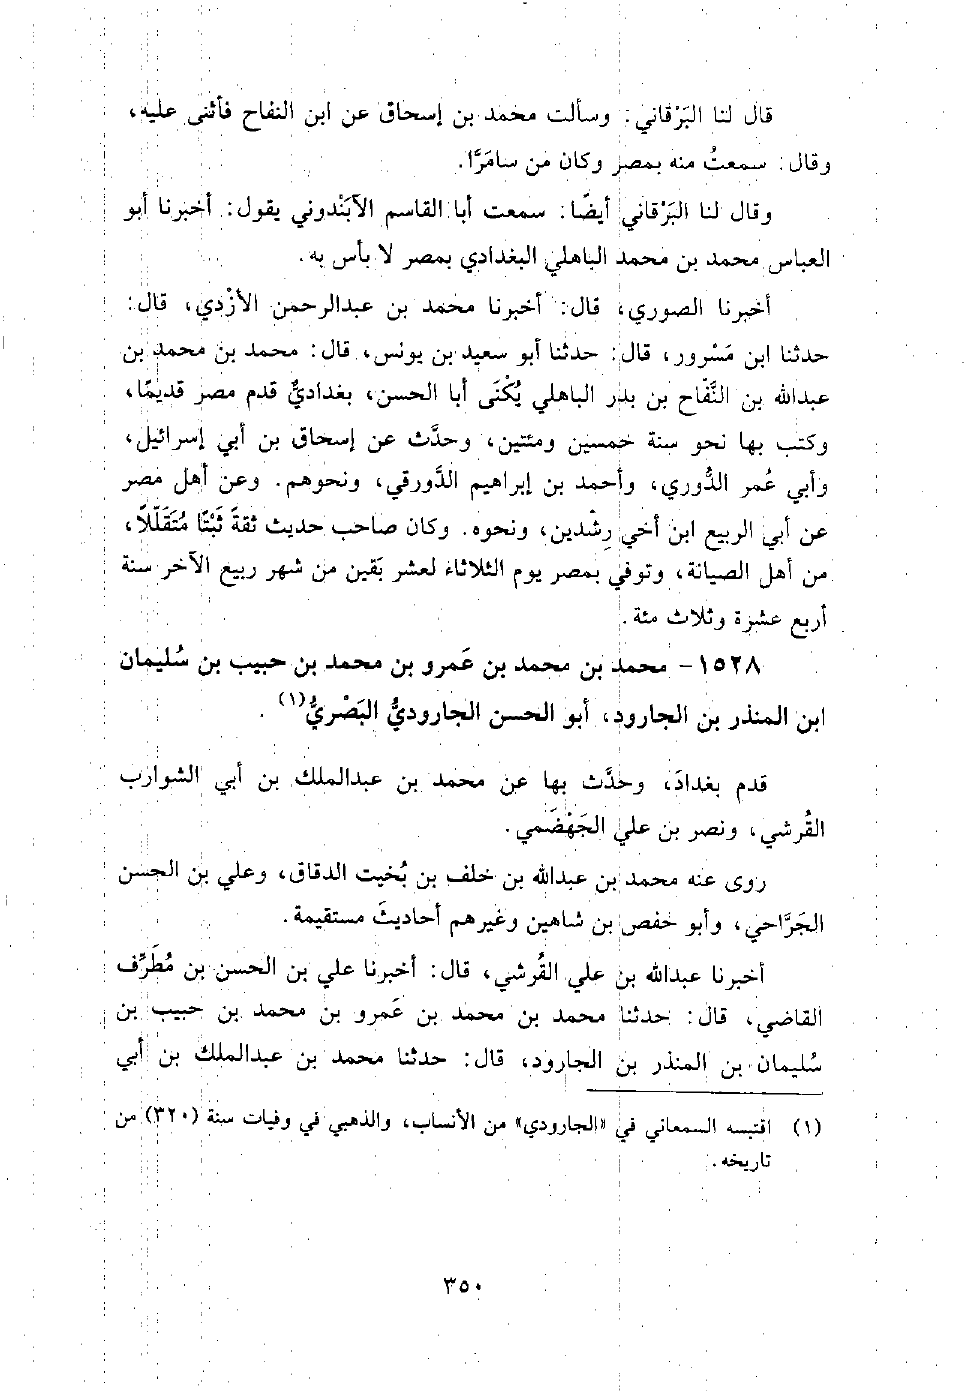 قال لنا البَرْقاني: وسألت محمد بن إسحاق عن ابن النفاح فأثنى عليه،
وقال: سمعتُ منه بمصر وكان من سامَرَّا.
وقال لنا البَرْقاني أيضًا: سمعت أبا القاسم الآبَنْدوني يقول: أخبرنا أبو
العباس محمد بن محمد الباهلي البغدادي بمصر لا بأس به.
أخبرنا الصوري، قال: أخبرنا محمد بن عبدالرحمن الأزْدي، قال:
حدثنا ابن مَسْرور، قال: حدثنا أبو سعيد بن يونس، قال: محمد بن محمد بن
عبدالله بن النَّفّاح بن بدر الباهلي يُكْنَى أبا الحسن، بغداديٌّ قدم مصر قديمًا،
وكتب بها نحو سنة خمسين ومئتين، وحدَّث عن إسحاق بن أبي إسرائيل،
وأبي عُمر الدُّوري، وأحمد بن إبراهيم الدَّورقي، ونحوهم. وعن أهل مصر
عن أبي الربيع ابن أخي رِشْدين، ونحوه. وكان صاحب حديث ثقةً ثَبْتًا مُتَقَلّلاً،
من أهل الصيانة، وتوفي بمصر يوم الثلاثاء لعشر بَقين من شهر ربيع الآخر سنة
أربع عشرة وثلاث مئة.
١٥٢٨- محمد بن محمد بن عَمرو بن محمد بن حبيب بن سُليمان
ابن المنذر بن الجارود، أبو الحسن الجاروديُّ البَصْريُّ(١).
قدم بغدادَ، وحدَّث بها عن محمد بن عبدالملك بن أبي الشوارب
القُرشي، ونصر بن علي الجَهْضَمي.
روى عنه محمد بن عبدالله بن خلف بن بُخيت الدقاق، وعلي بن الحسن
الجَرَّاحي، وأبو حفص بن شاهين وغيرهم أحاديثَ مستقيمة.
أخبرنا عبدالله بن علي القُرشي، قال: أخبرنا علي بن الحسن بن مُطَرِّف
القاضي، قال: حدثنا محمد بن محمد بن عَمرو بن محمد بن حبيب بن
سُليمان بن المنذر بن الجارود، قال: حدثنا محمد بن عبدالملك بن أبي
(١) اقتبسه السمعاني في «الجارودي» من الأنساب، والذهبي في وفيات سنة (٣٢٠) من
تاريخه.
٣٥٠